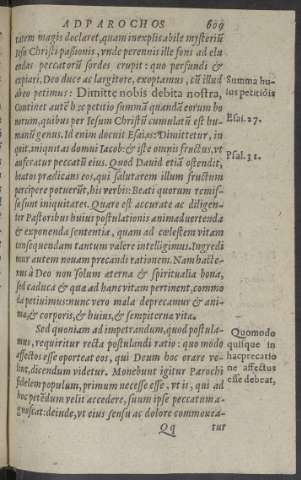 AD PAROCHOS 609
tatem magis declaret, quam inexplicabile mysteriũ
Iesu Christi passionis, vnde perennis ille fons ad elu
endas peccatorũ sordes erupit: quo perfundi &
expiari, Deo duce ac largitore, exoptamus, cũ illud
abeo petimus: Dimitte nobis debita nostra,
Summa hu-
ius petitiõis
Continet autẽ hæc petitio summã quandã eorum bo
norum, quibus per Iesum Christũ cumulatũ est hu-
manũ genus. Id enim docuit Esaias: Dimittetur, in
Esai. 27.
quit, iniquitas domui Iacob: & iste omnis fructus, vt
auferatur peccatũ eius. Quod Dauid etiã ostendit,
Psal. 31.
beatos prædicans eos, qui salutarem illum fructum
percipere potuerũt, his verbis: Beati quorum remis-
sæ sunt iniquitates. Quare est accurate ac diligen-
ter Pastoribus huius postulationis animaduertenda
& exponenda sententia, quam ad cœlestem vitam
consequendam tantum valere intelligimus. Ingredi
mur autem nouam precandi rationem. Nam hacte-
nus à Deo non solum æterna & spiritualia bona,
sed caduca & quæ ad hanc vitam pertinent, commo
da petiuimus: nunc vero mala deprecamur & ani-
mæ, & corporis, & huius, & sempiternæ vitæ.
Sed quoniam ad impetrandum, quod postula-
mus, requiritur recta postulandi ratio: quo modo
affectos esse oporteat eos, qui Deum hoc orare ve-
lint, dicendum videtur. Monebunt igitur Parochi
fidelem populum, primum necesse esse, vt is, qui ad
hoc petẽdum velit accedere, suum ipse peccatum a-
gnoscat: deinde, vt eius sensu ac dolore commouea-
Quomodo
quisque in
hac precatio
ne affectus
esse debeat,
Qq tur